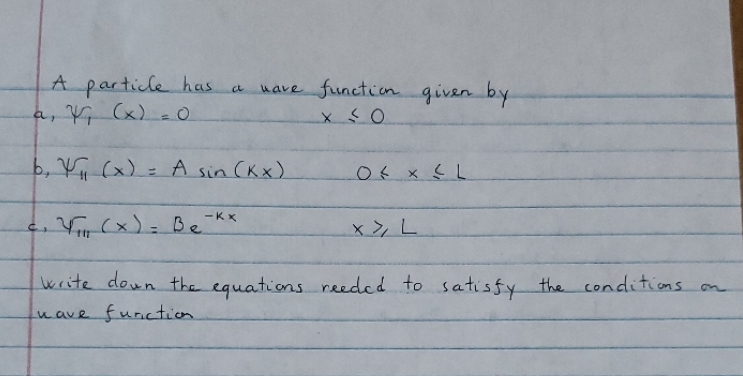 A particle has a wave function given by
a, Ψ_I (x) = 0 x ≤ 0
b, Ψ_II (x) = A sin(Kx) 0 ≤ x ≤ L
c, Ψ_III (x) = Be^{-Kx} x ≥ L
Write down the equations needed to satisfy the conditions on
wave function